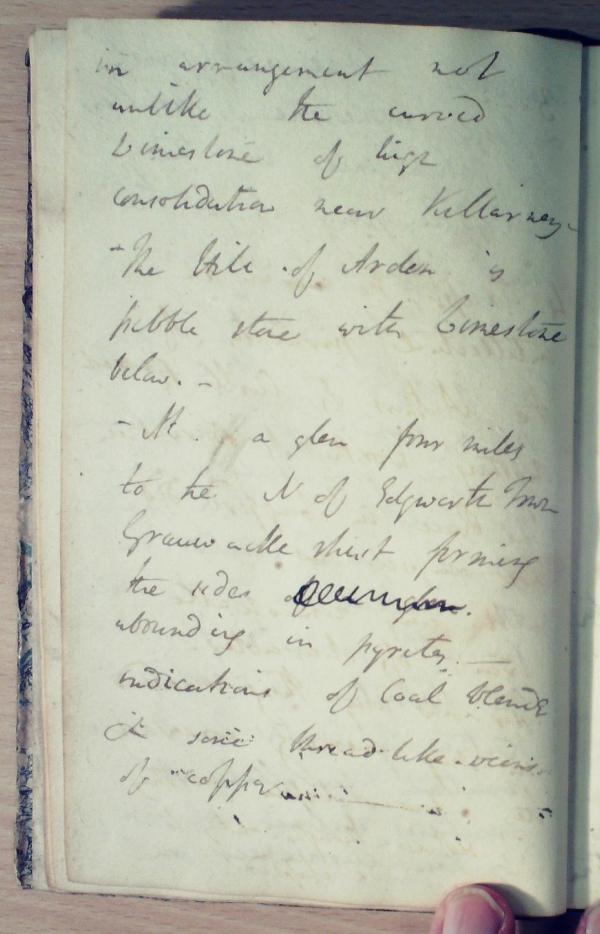 in arrangement not
unlike the curved
Limestone of high
consolidation near Killarney -
- The Hill of Arden is
pebble stone with Limestone
below. -
- At a glen four miles
to the N of Edgworth Town
Grauwacke shist forming
the sides of
abounding in pyrites. —
indications of Coal blende
& some thread like veins
of copper